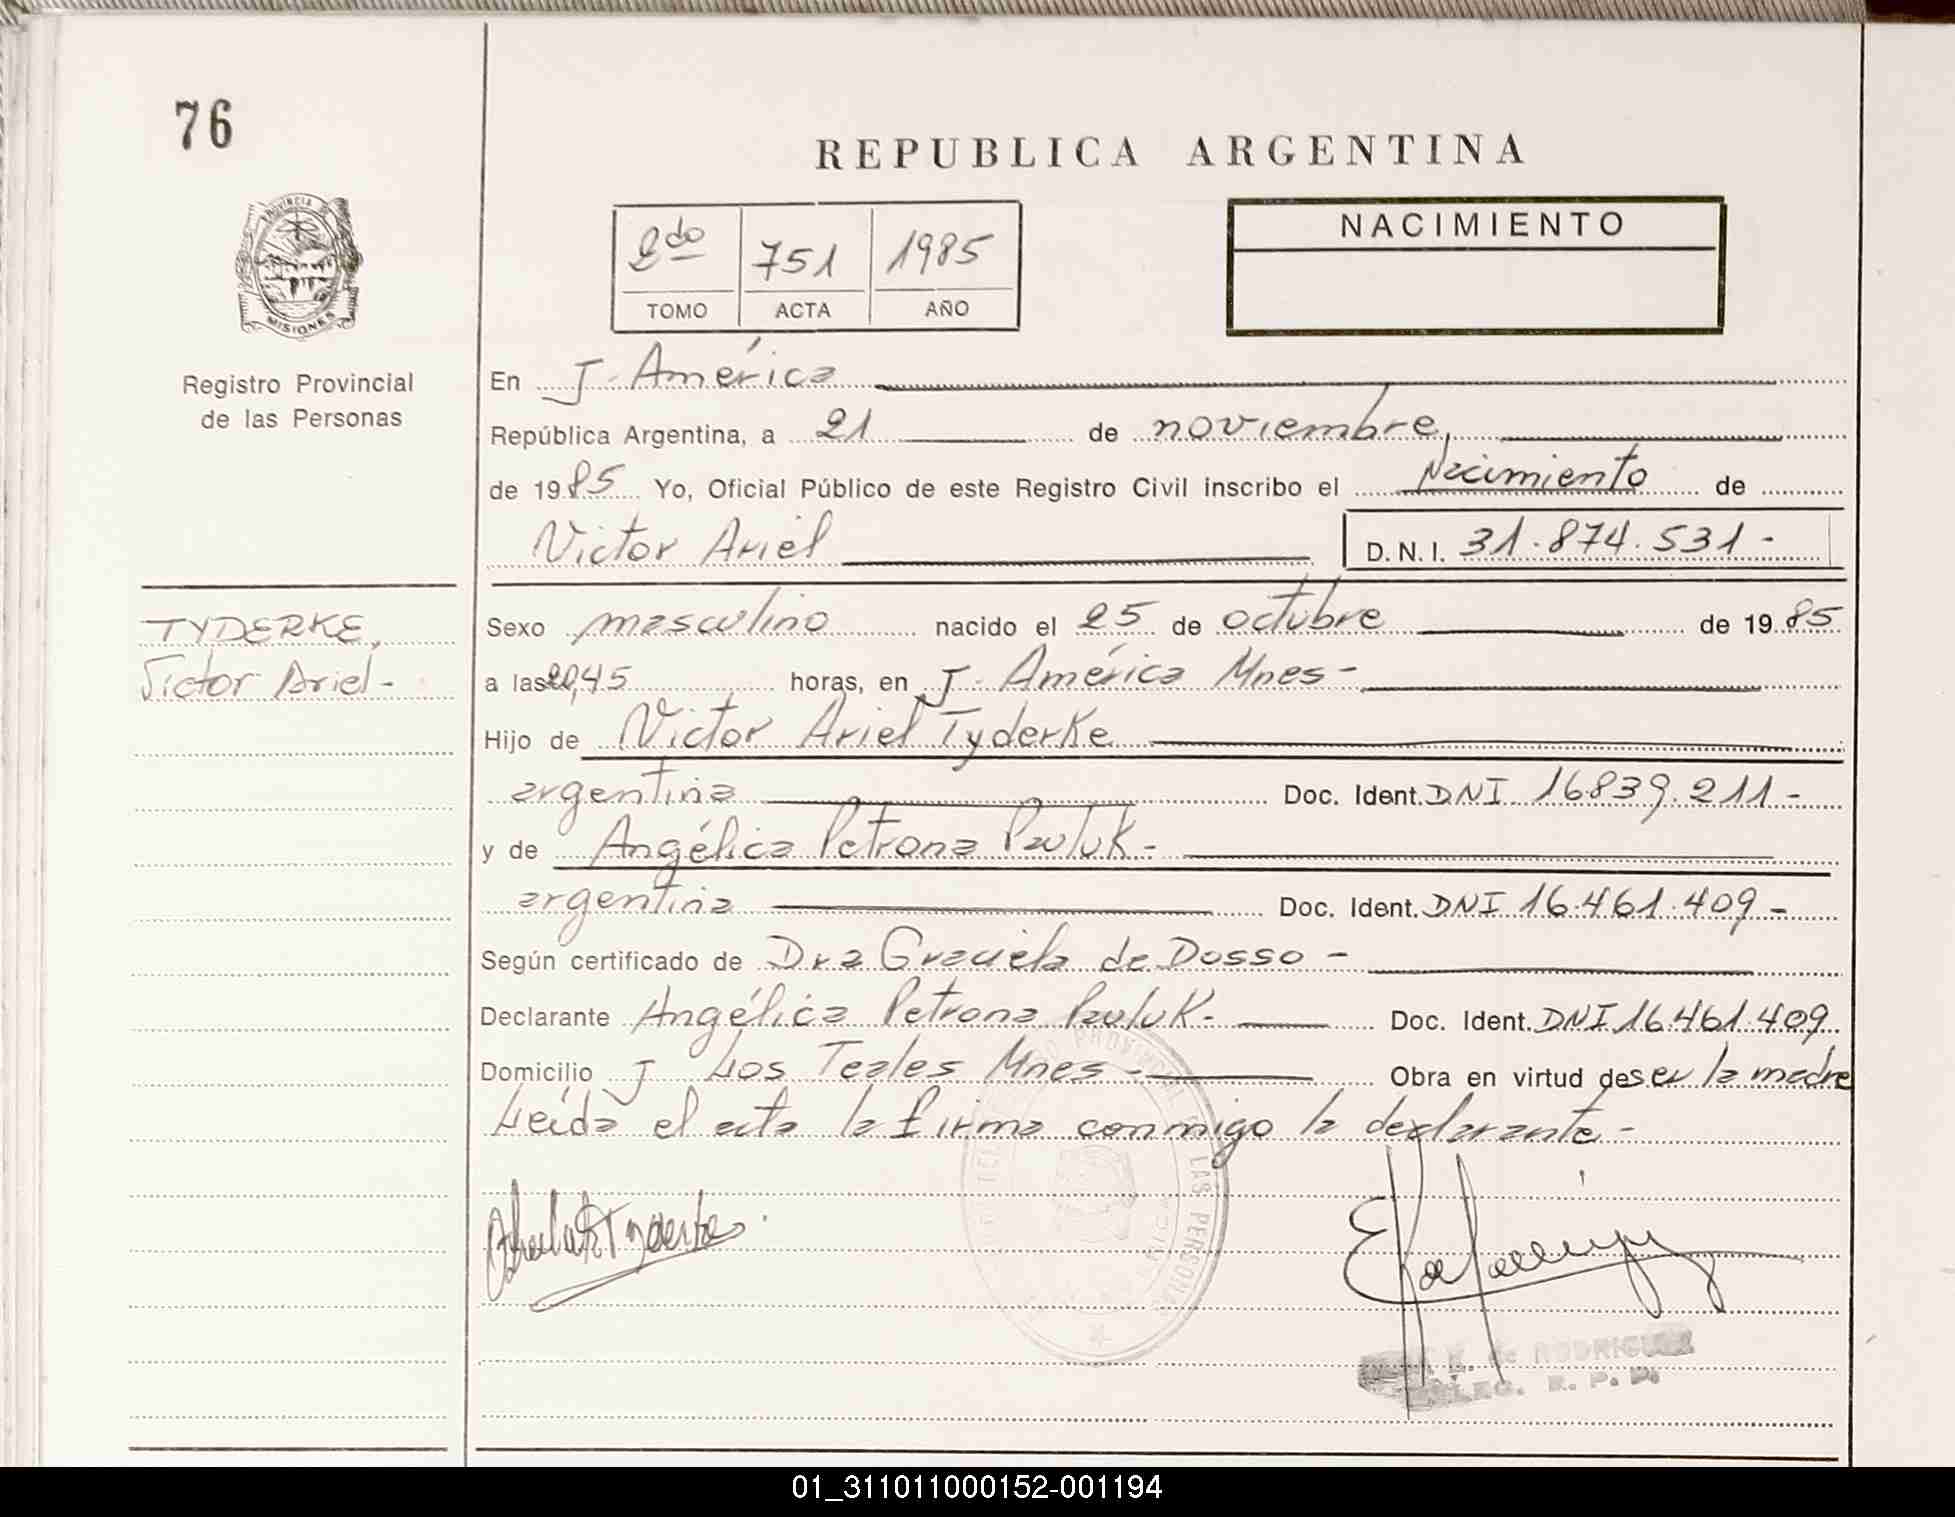 76
REPUBLICA ARGENTINA
PROVINCIA
MISIONES
Registro Provincial
de las Personas
2do 751 1985
TOMO ACTA AÑO
NACIMIENTO
En J. América
República Argentina, a 21 de noviembre,
de 1985 Yo, Oficial Público de este Registro Civil inscribo el Nacimiento de
Victor Ariel D.N.I. 31.874.531-
TYDERKE,
Victor Ariel-
Sexo masculino nacido el 25 de octubre de 1985
a las 20,45 horas, en J. América Mnes-
Hijo de Victor Ariel Tyderke
argentina Doc. Ident. DNI 16839.211-
y de Angélica Petrona Pauluk-
argentina Doc. Ident. DNI 16.461.409-
Según certificado de Dra Graciela de Dosso-
Declarante Angélica Petrona Pauluk- Doc. Ident. DNI 16.461.409
Domicilio J Los Teales Mnes- Obra en virtud de ser la madre
Leída el acta la firma conmigo la declarante-
PROVINCIAL DE LAS PERSONAS
Tyderke
de RODRIGUEZ
R. P. P.
01_311011000152-001194